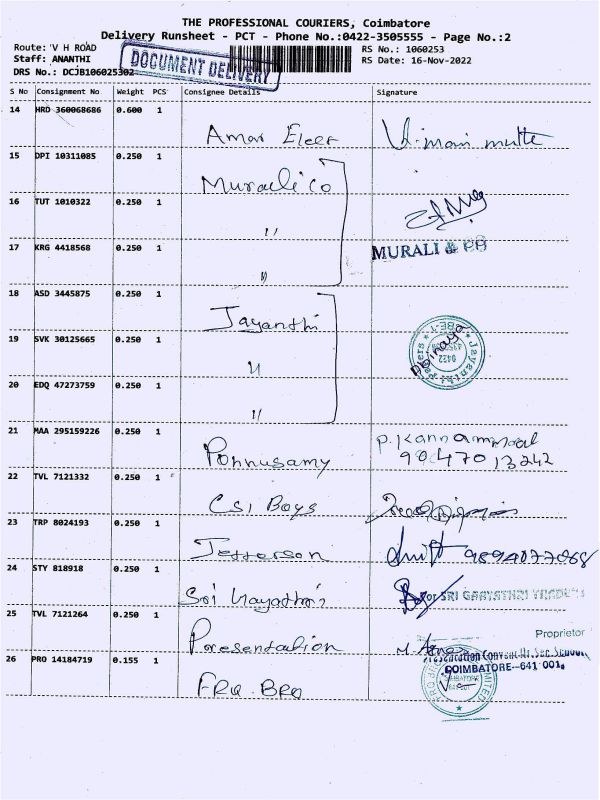 THE PROFESSIONAL COURIERS, Coimbatore
Delivery Runsheet - PCT - Phone No.:0422-3505555 - Page No.:2
Route: 'V H ROAD
RS No.: 1060253
Staff: ANANTHI
RS Date: 16-Nov-2022
DRS No.: DCJB106025302
DOCUMENT DELIVERY
S No Consignment No Weight PCS Consignee Details Signature
14 HRD 360068686 0.600 1
Amar Eleer
15 DPI 10311085 0.250 1
Murali co
16 TUT 1010322 0.250 1
"
MURALI & CO
17 KRG 4418568 0.250 1
"
18 ASD 3445875 0.250 1
Jayanthi
19 SVK 30125665 0.250 1
"
20 EDQ 47273759 0.250 1
"
21 MAA 295159226 0.250 1
Ponnusamy
P. Kannammaal
9047013242
22 TVL 7121332 0.250 1
CSI Boys
23 TRP 8024193 0.250 1
Jefferson
24 STY 818918 0.250 1
Sri Gayathri's
For SRI GAAYATHRI TRADERS
25 TVL 7121264 0.250 1
Proprietor
Presentation
Presentation Convent Hr. Sec. School,
COIMBATORE-641 001.
26 PRO 14184719 0.155 1
FRQ BRO